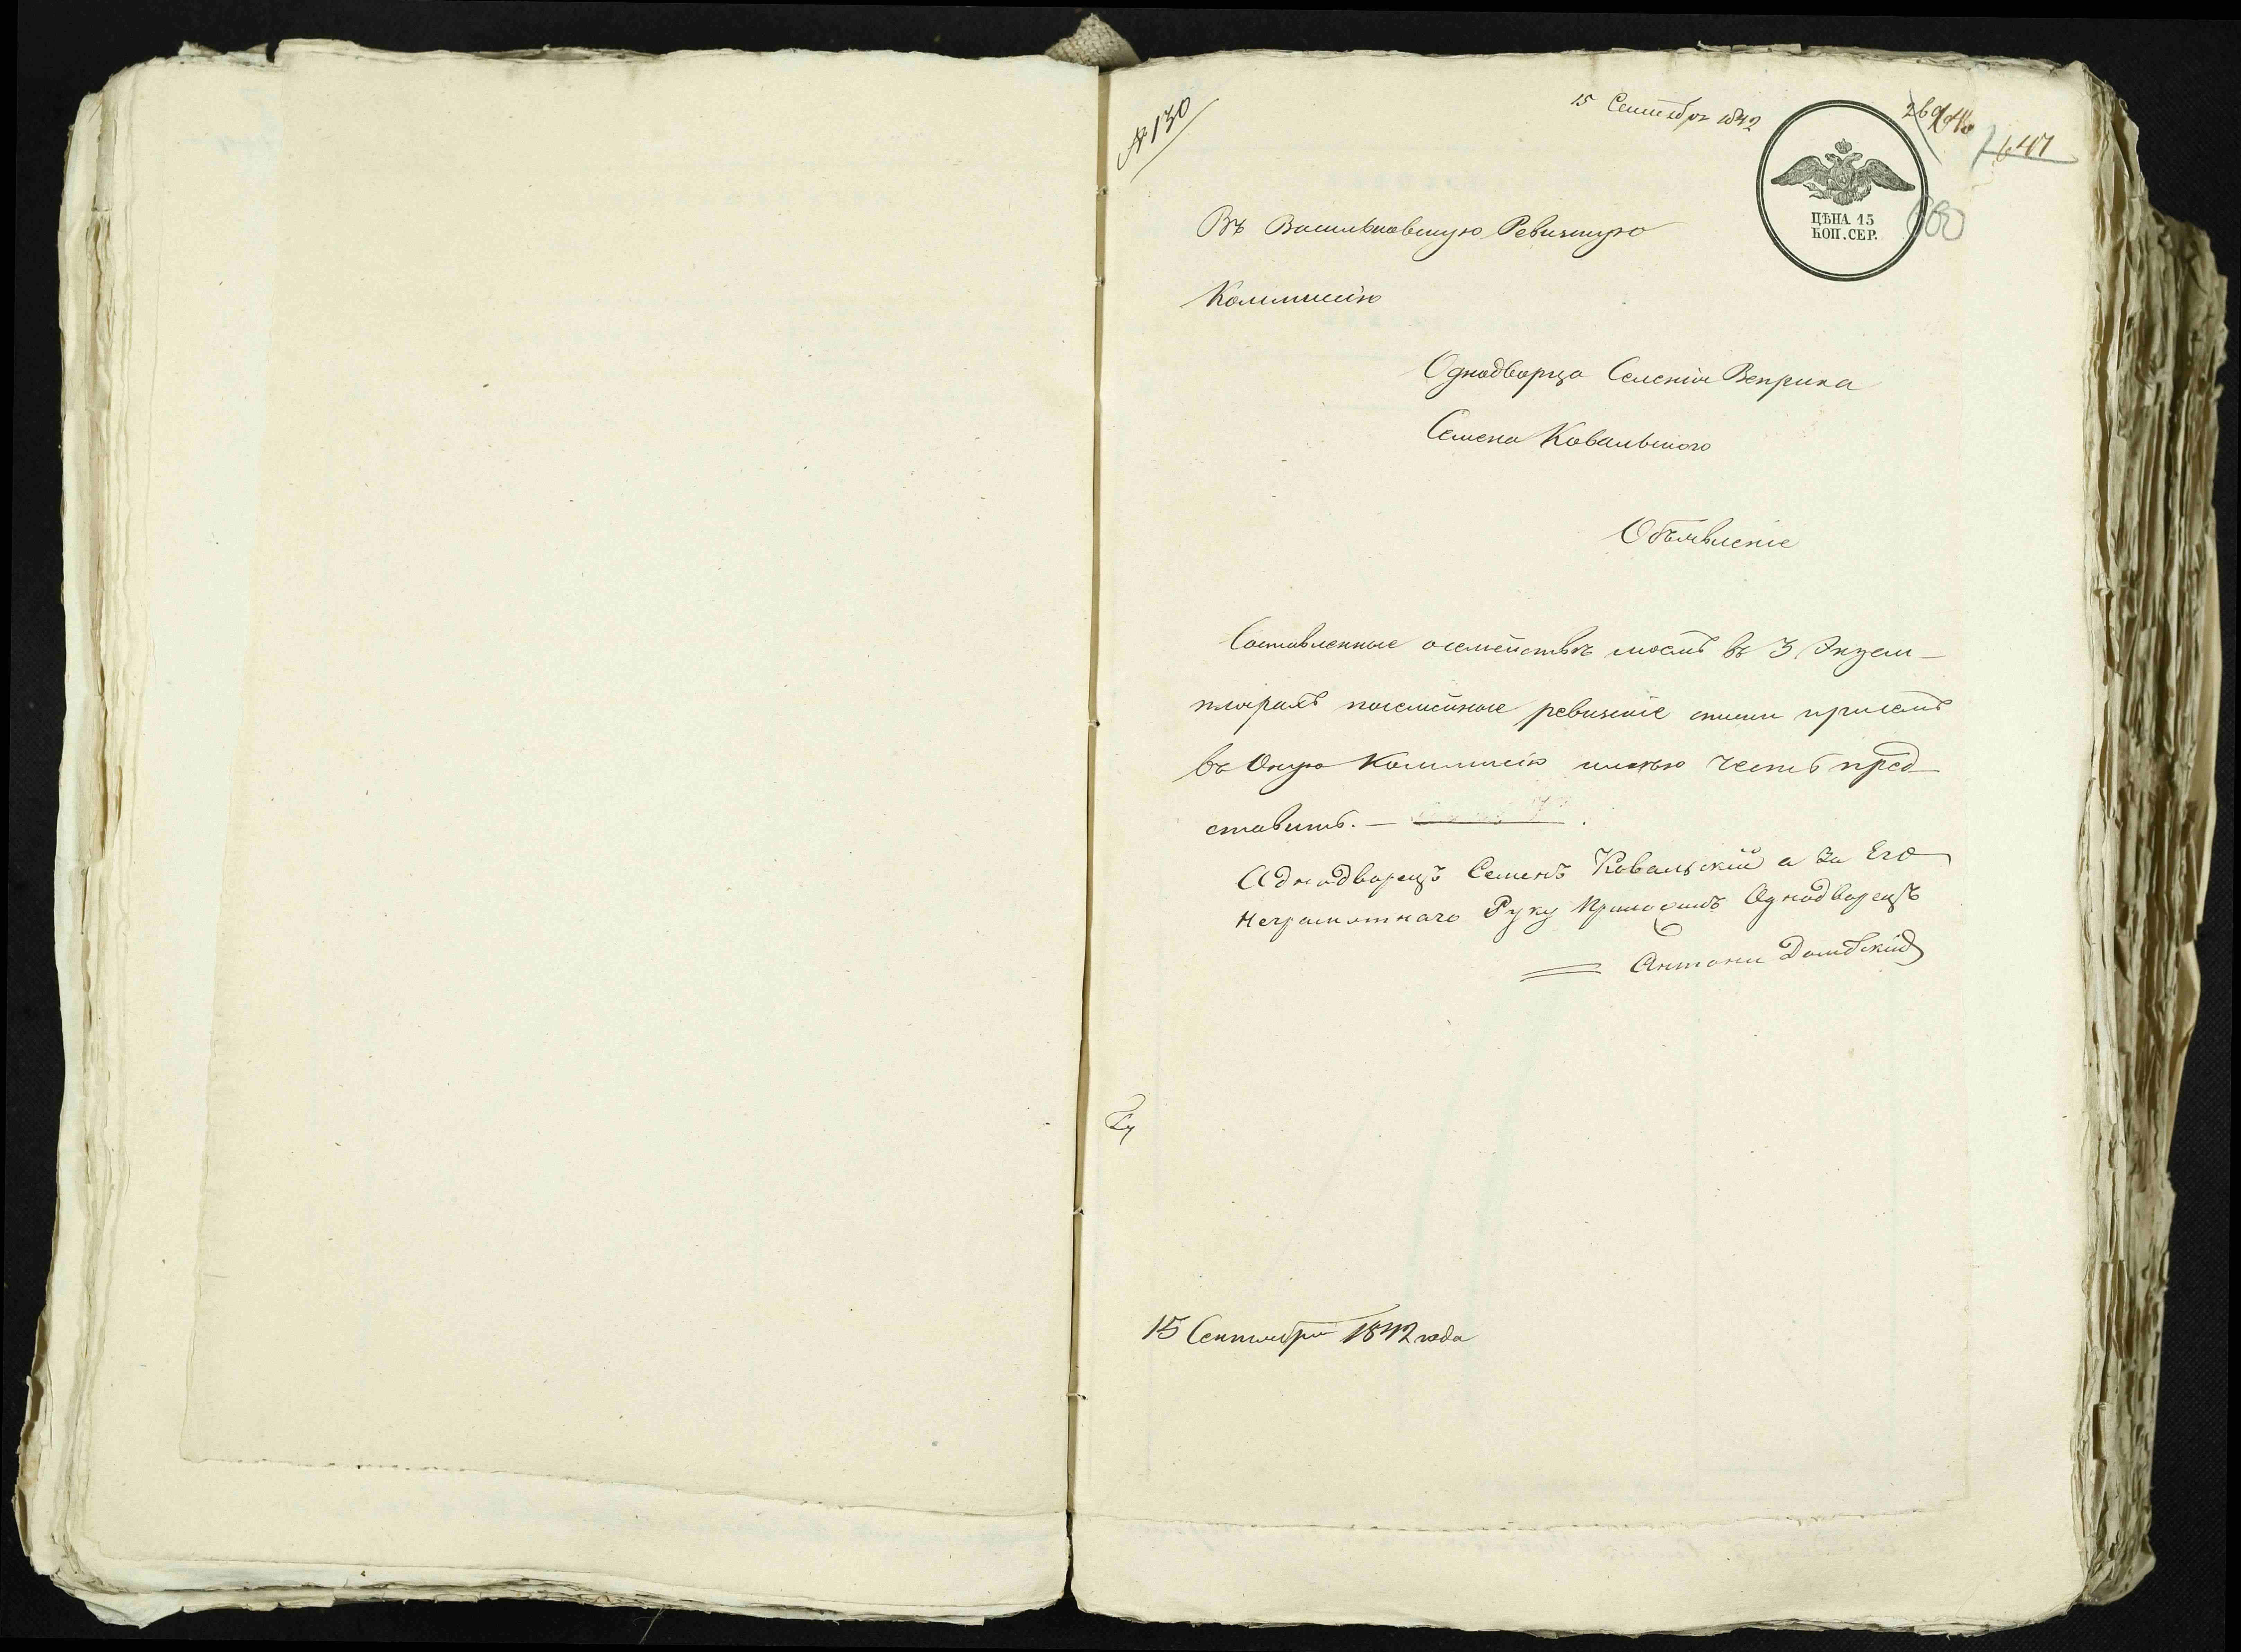 № 130
15 Сентября 1842
641
ЦѢНА 15
КОП. СЕР.
Въ Васильковскую Ревизскую
Коммисію
Однодворца Селенія Веприка
Семена Ковальского
Объявленіе
Составленные о семействѣ моемъ въ 3 Экзем-
плярахъ посемейные ревизскіе сказки при семъ
въ Оную Коммисію имѣю честь пред
ставить. —
Аднадворецъ Семенъ Ковальскій а за Его
неграмотнаго Руку Приложилъ Однодворецъ
Антони Домбскій
15 Сентября 1842 года